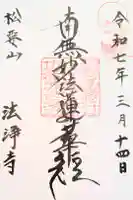 令和七年三月十四日
南無妙法蓮華経
松栄山
法浄寺